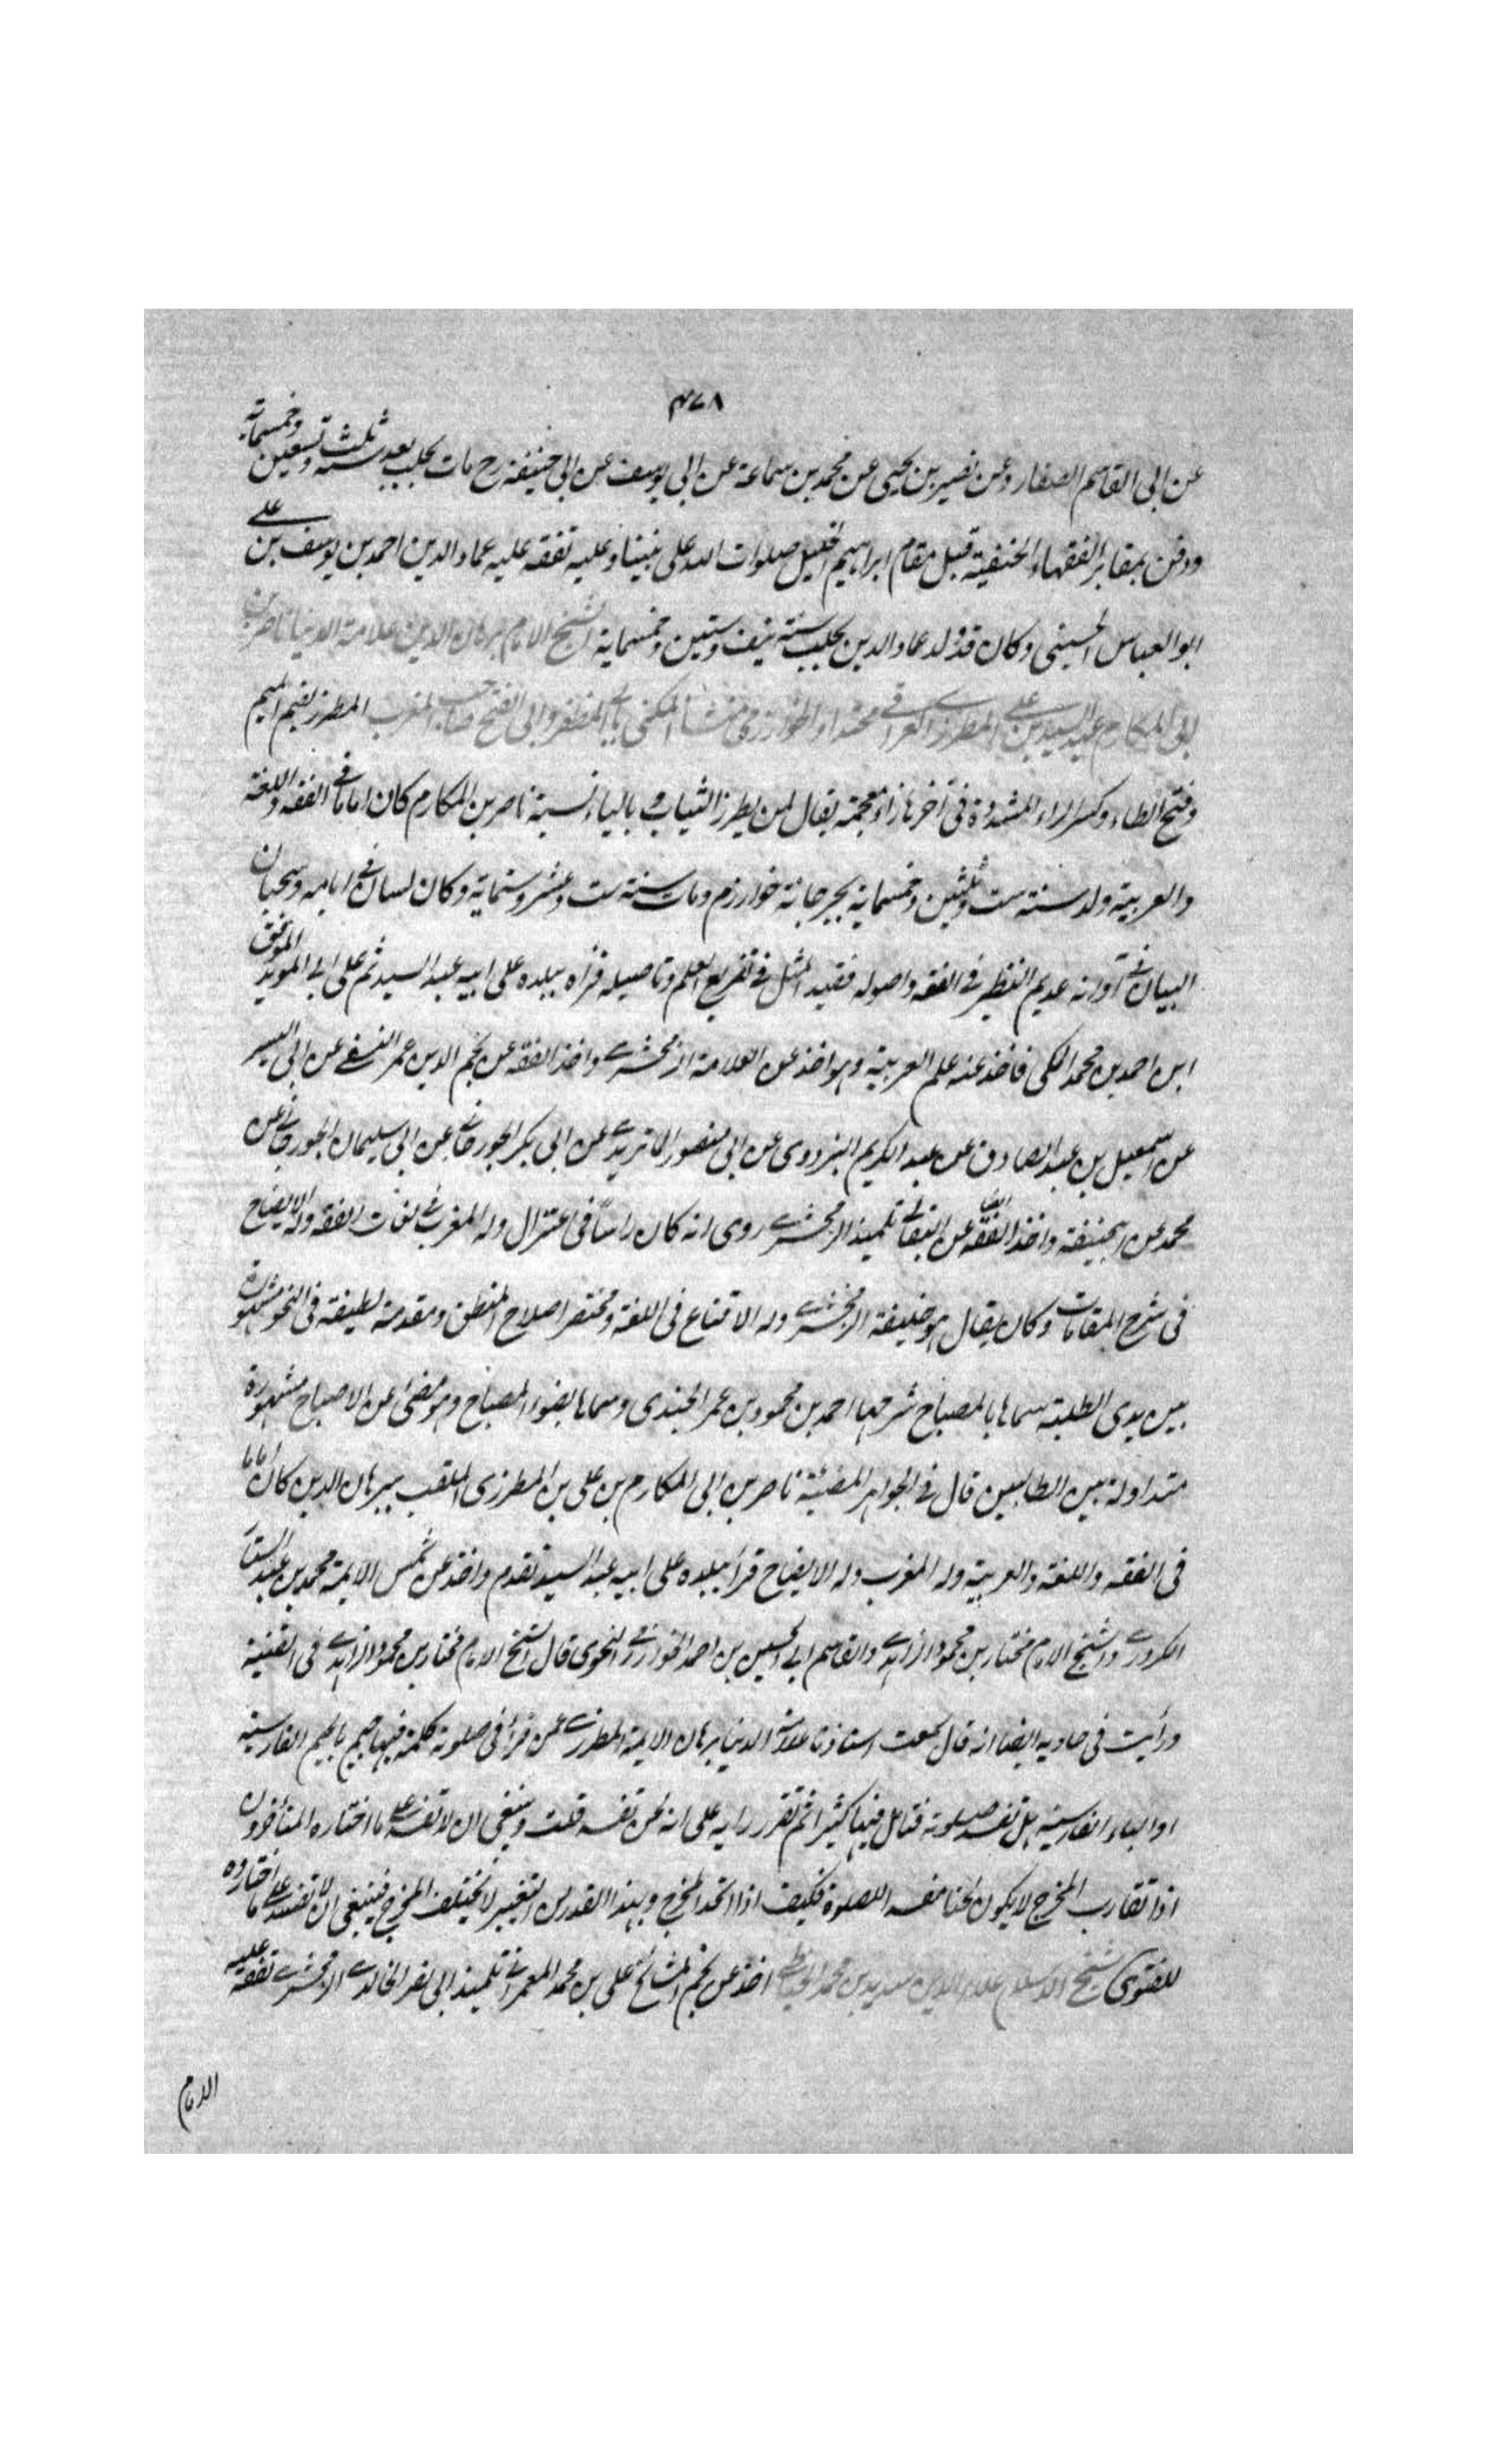 ۴۷۸
عن ابى القاسم الصفار وعن نصير بن يحيى عن محمد بن سماعة عن ابى يوسف عن ابى حنيفة رح مات بحلب بعد سنة ثلث وتسعين وخمسماية
ودفن بمقابر الفقهاء الحنفية قبل مقام ابراهيم الخليل صلوات الله على نبينا وعليه تفقه عليه عماد الدين احمد بن يوسف بن على
ابو العباس الحسينى وكان قد ولد عماد الدين بحلب سنة نيف وستين وخمسماية الشيخ الامام برهان الدين علامة الدنيا ناصر بن
ابى المكارم عبد السيد بن على المطرزى العراقى محتدا والخوارزمى منشأ المكنى بابى المظفر وابى الفتح صاحب المغرب المطرز بضم الميم
وفتح الطاء وكسر الراء المشددة فى آخرها زاء معجمة يقال لمن يطرز الثياب وبالياء نسبة ناصر بن المكارم كان اماما فى الفقه واللغة
والعربية ولد سنة ست وثلثين وخمسماية بجرجانية خوارزم ومات سنة ست وعشر وستماية وكان لسان فى ايامه وسحبان
البيان فى آوانه عديم النظير فى الفقه واصوله فقيد المثل فى تفريع العلم وتاصيله قرأه ببلده على ابيه عبد السيد ثم على ابى المويد الموفق
ابن احمد بن محمد المكى فاخذ عنه علم العربية وهو اخذ عن العلامة الزمخشرى واخذ الفقه عن نجم الدين عمر النسفى عن ابى اليسر
عن اسمعيل بن عبد الصادق عن عبد الكريم البزدوى عن ابى منصور الماتريدى عن ابى بكر الجورجانى عن ابى سليمان الجورجانى عن
محمد عن ابيحنيفة واخذ الفقه ايضا عن البقالى تلميذ الزمخشرى روى انه كان راسا فى اعتزال وله المغرب فى لغات الفقه وله الايضاح
فى شرح المقامات وكان يقال هو خليفة الزمخشرى وله الاقناع فى اللغة ومختصر اصلاح المنطق ومقدمة لطيفة فى النحو مشهورة
بين يدى الطلبة سماها بالمصباح شرحها احمد بن محمود بن عمر الجندى وسماها بضوء المصباح وهو مضئ عن الاصباح مشهورة
متداولة بين الطالبين قال فى الجواهر المضيئة ناصر بن ابى المكارم بن على بن المطرزى الملقب ببرهان الدين كان اماما
فى الفقه واللغة والعربية وله المغرب وله الايضاح قرأ ببلده على ابيه عبد السيد تقدم واخذ عن شمس الايمة محمد بن عبد الستار
الكردرى والشيخ الامام مختار بن محمود الزاهدى والقاسم ابى الحسين بن احمد الخوارزمى النحوى قال الشيخ الامام مختار بن محمود الزاهدى فى القنية
ورأيت فى حاويه ايضا انه قال سمعت استاذنا علامة الدنيا برهان الايمة المطرزى عمن قرأ فى صلوته كلمة فيها جيم بالجيم الفارسية
او الباء الفارسية هل تفسد صلوته فتامل فيها كثيرا ثم تقرر رايه على انه لحن تفسد قلت وينبغى ان لا تفسد على ما اختاره المتأخرون
اذا تقارب المخرج لا يكون لحنا مفسد الصلوة فكيف اذا اتحد المخرج وبهذا القدر من التغيير لا يختلف المخرج فينبغى ان لا تفسد على ما اختاروه
للفتوى شيخ الاسلام علاء الدين سديد بن محمد الخياطى اخذ عن نجم المشايخ على بن محمد العمرانى تلميذ ابى نصر الخالدى الزمخشرى تفقه عليه
الامام